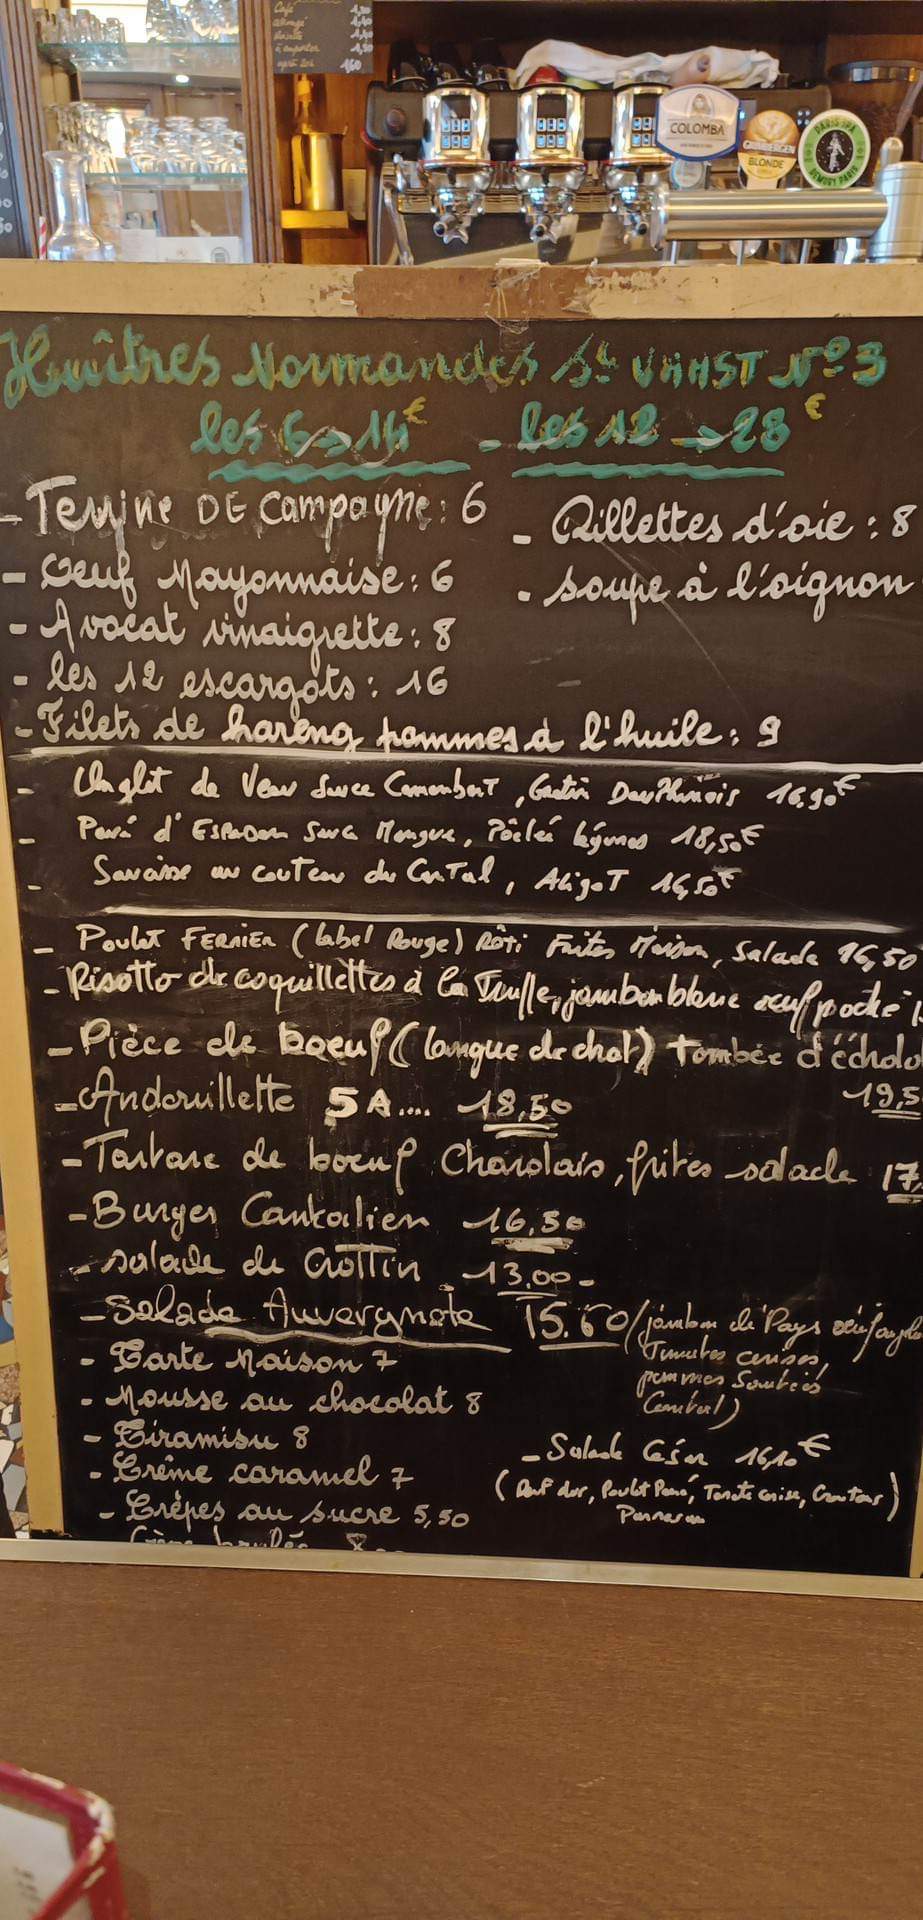 Café
allongé
Noisette
à emporter
COLOMBA
GRIMBERGEN
BLONDE
PARIS IPA
DEMORY PARIS
Huîtres Normandes St VAAST N°3
les 6 → 14€ - les 12 → 28€
- Terrine DE Campagne : 6
- Rillettes d'oie : 8
- Oeuf Mayonnaise : 6
- Soupe à l'oignon
- Avocat vinaigrette : 8
- les 12 escargots : 16
- Filets de hareng pommes à l'huile : 9
- Onglet de Veau Sauce Camembert, Gratin Dauphinois 16,90€
- Pavé d'Espadon Sauce Mangue, Poêlée légumes 18,50€
- Saucisse au couteau du Cantal, Aligot 16,50€
- Poulet FERMIER (label Rouge) Rôti Frites Maison, Salade 16,50
- Risotto de coquillettes à la Truffe, jambon blanc oeuf poché
- Pièce de boeuf (langue de chat) tombée d'échalo
19,5
- Andouillette 5A.... 18,50
- Tartare de boeuf Charolais, frites salade 17,
- Burger Cantalien 16,50
- salade de Crottin 13.00 -
- Salade Auvergnate 15.60 / jambon de Pays
Tomates cerises,
pommes Sautées
Cantal)
- Tarte Maison 7
- Mousse au chocolat 8
- Tiramisu 8
- Salade César 16,10€
- Crème caramel 7
(Oeuf dur, Poulet Pané, Tomate cerise, Croutons)
Parmesan
- Crêpes au sucre 5,50
Crème brulée 8